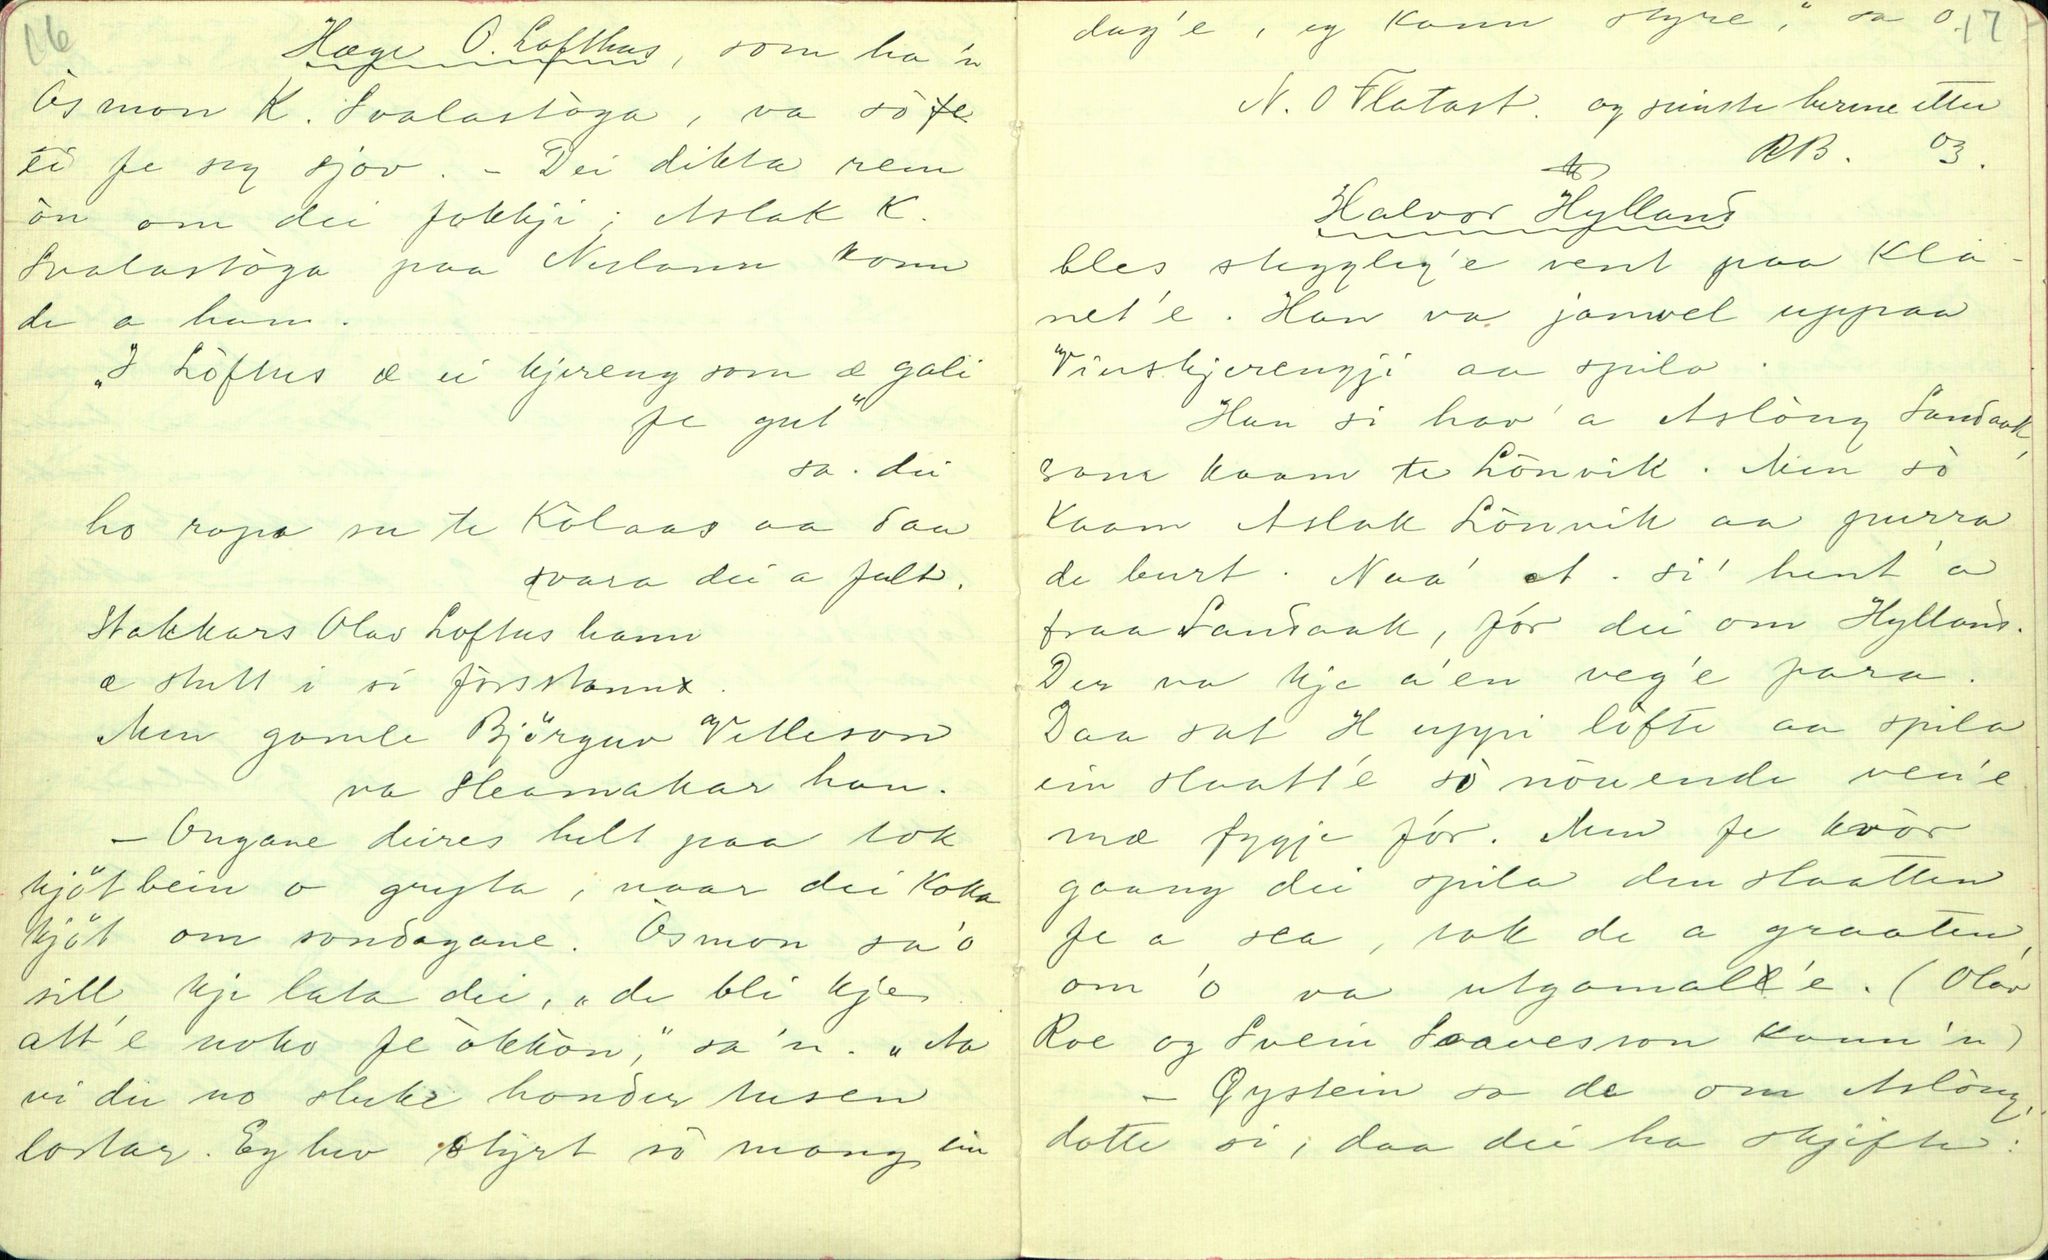 16
Hæge O. Lofthus, som ha 'n
Òsmon K. Svalastòga, va sò fe
ei fe seg sjøv. – Dei dikta rem
òn om dei fokkji; Aslak K.
Svalastòga paa Neslann konn
de a ham.
"I Löftus æ ei kjereng som æ gali
fe gut"
sa. dei
ho ropa su te Kòlaas aa daa
svara dei a falt.
Stakkars Olav Loftus hann
æ stutt i si forsstann.
Men gamle Björguv Vetleson
va Heamakar han.
– Ongane deires helt paa tok
kjötbein o gryta, naar dei koka
kjöt om sondagane. Òsmon sa'o
sill kje lata dei, "de bli kje
att'e noko fe òkkòn," sa'n. "Aa
vi dei no sluke honder tusen
lostar. Eg hev styrt sò mang ein
17
dag'e, eg kann styre," sa o.
N. O Flatast. og siniste berme etter
RB. 03.
Halvor Hylland
bles steggleg'e vent paa Kla-
net'e. Han va jamvel uppaa
Vinskjerengji aa spila.
Han si hav' a Aslòug Sandaak,
som kaam te Lönvik. Men sò
kaam Aslak Lönvik aa purra
de burt. Naa' et. si' hent' a
fraa Sandaak, fór dei om Hylland.
Der va kje a'en veg'e fara.
Daa sat H uppi löfte aa spila
ein slaatt'e sò nöuende ven'e
mæ fygje fór. Men fe kvòr
gaang dei spila den slaatten
fe a sea, tok de a graaten,
om 'o va utgamall'e. (Olav
Roe og Svein Soavesson kann'n)
– Øystein sa de om Aslòug,
dotte si, daa dei ha skjifte: